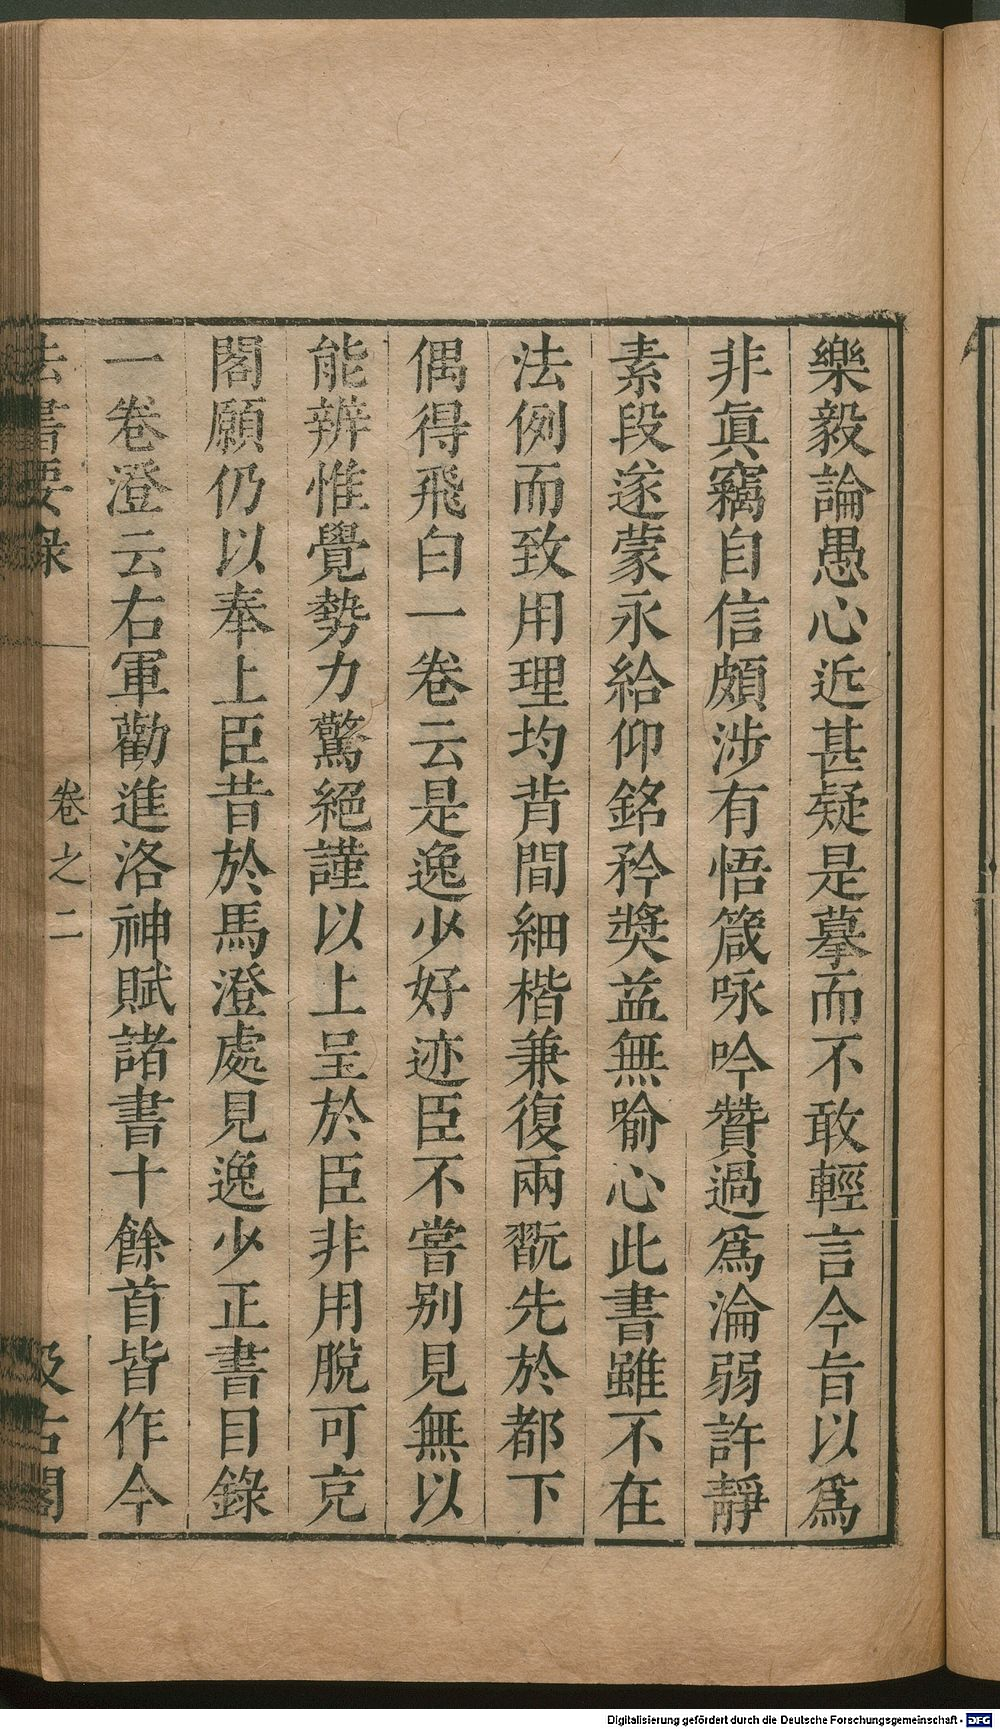 樂毅論愚心近甚疑是摹而不敢輕言今旨以爲
非眞竊自信頗涉有悟箴咏吟贊過爲淪弱許靜
素段遂蒙永給仰銘矜奬益無喻心此書雖不在
法例而致用理均背間細楷兼復兩翫先於都下
偶得飛白一卷云是逸少好迹臣不嘗别見無以
能辨惟覺勢力驚絕謹以上呈於臣非用脫可充
閣願仍以奉上臣昔於馬澄處見逸少正書目錄
一卷澄云右軍勸進洛神賦諸書十餘首皆作今
法書要錄 卷之二 汲古閣
Digitalisierung gefördert durch die Deutsche Forschungsgemeinschaft - DFG